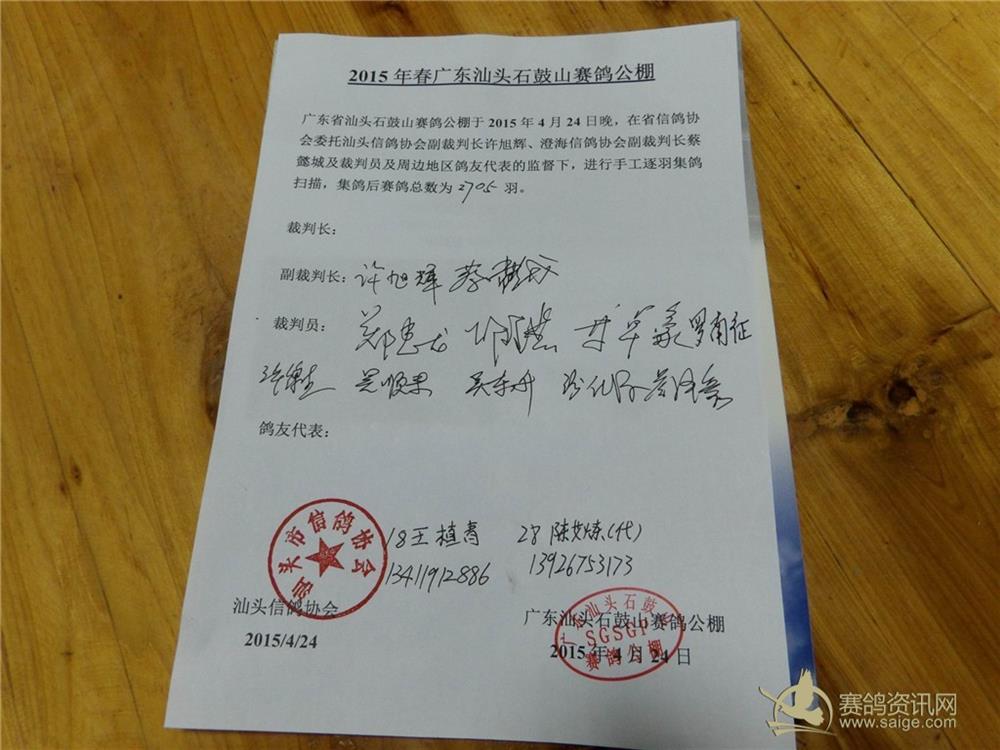 2015年春广东汕头石鼓山赛鸽公棚
广东省汕头石鼓山赛鸽公棚于2015年4月24日晚，在省信鸽协
会委托汕头信鸽协会副裁判长许旭辉、澄海信鸽协会副裁判长蔡
懿城及裁判员及周边地区鸽友代表的监督下，进行手工逐羽集鸽
扫描，集鸽后赛鸽总数为2705羽。
裁判长：
副裁判长：许旭辉 蔡懿城
裁判员：郑惠龙 罗南征
吴顺果 吴东升
鸽友代表：
18王植青 28陈女炼(代)
13411912886 13926753173
汕头市信鸽协会
汕头信鸽协会
2015/4/24
广东汕头石鼓山
SGSGP
赛鸽公棚
广东汕头石鼓山赛鸽公棚
2015年4月24日
赛鸽资讯网
www.saige.com